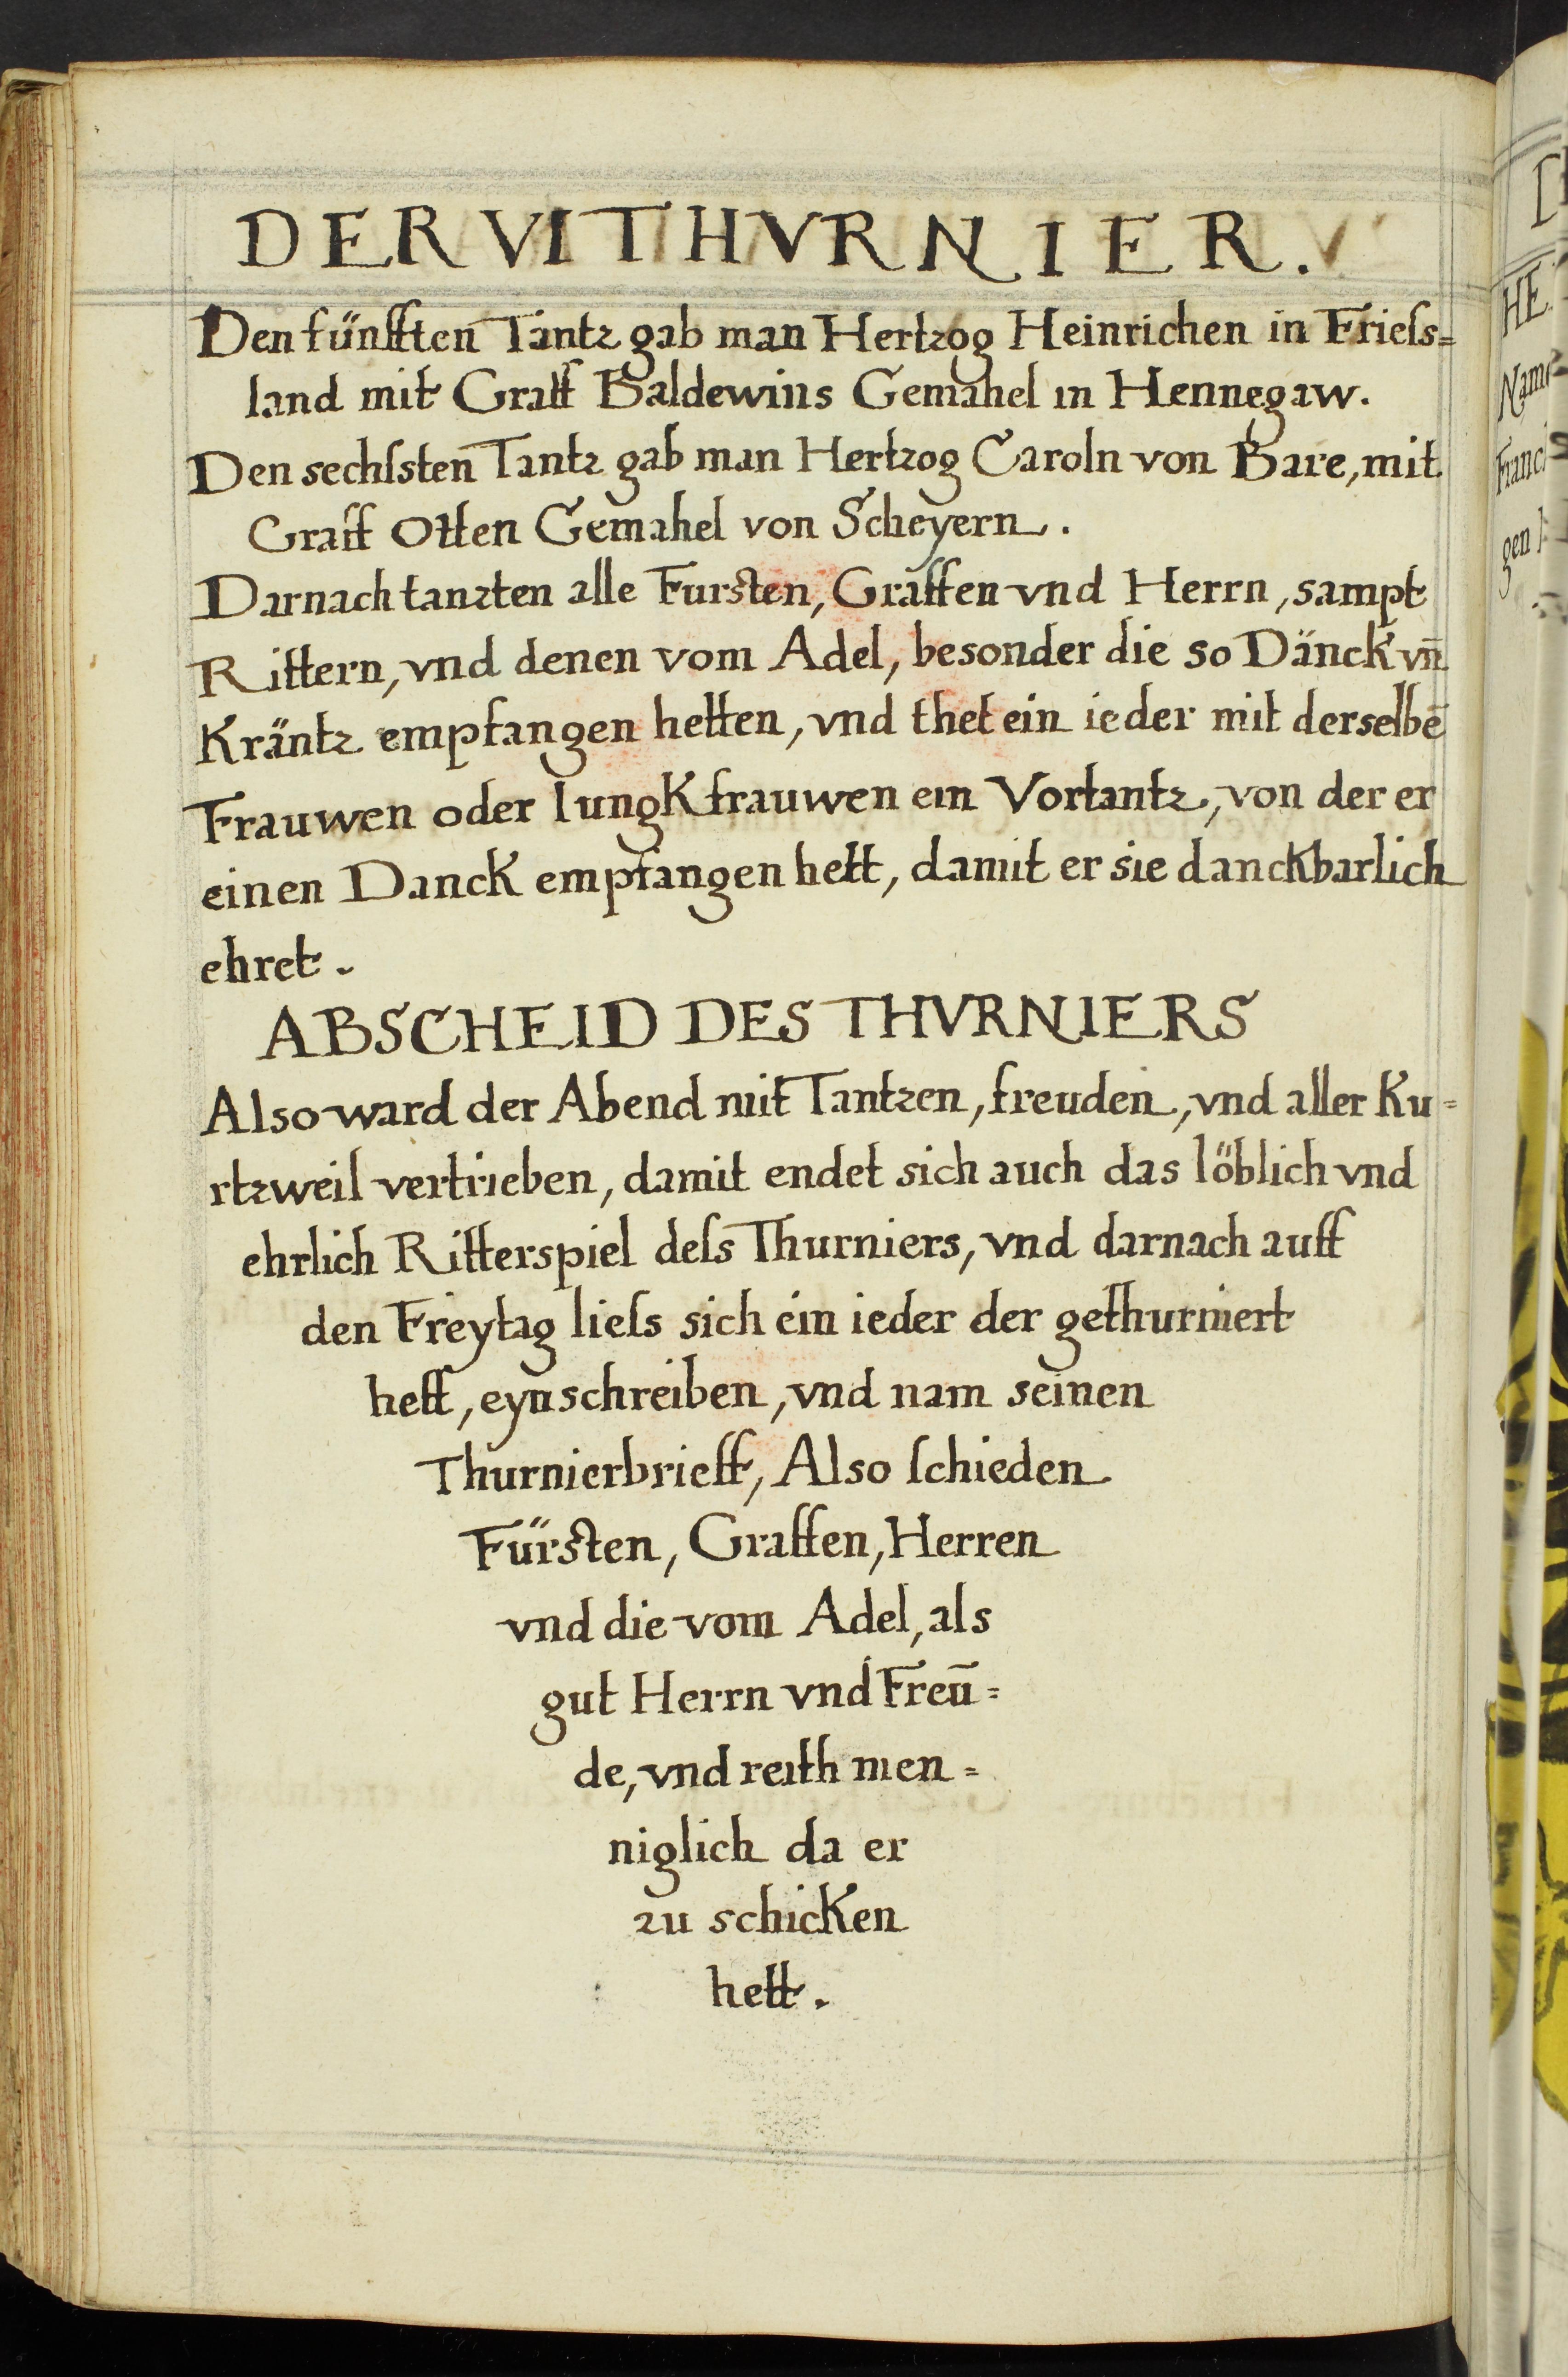 DER VI THVRNIER.
Den fünfften Tantz gab man Hertzog Heinrichen in Frieſs=
land mit Graff Baldewins Gemahel in Hennegaw.
Den sechſsten Tantz gab man Hertzog Caroln von Bare, mit
Graff Otten Gemahel von Scheyern.
Darnach tanzten alle Fursten, Graffen vnd Herrn, sampt
Rittern, vnd denen vom Adel, besonder die so Dänck vn̄
Kräntz empfangen hetten, vnd thet ein ieder mit derselbē
Frauwen oder Iungkfrauwen ein Vortantz, von der er
einen Danck empfangen hett, damit er sie danckbarlich
ehret.
ABSCHEID DES THVRNIERS
Also ward der Abend mit Tantzen, freuden, vnd aller Ku=
rtzweil vertrieben, damit endet sich auch das löblich vnd
ehrlich Ritterspiel deſs Thurniers, vnd darnach auff
den Freytag lieſs sich ein ieder der gethurniert
hett, eynschreiben, vnd nam seinen
Thurnierbrieff, Also ſchieden
Fürsten, Graffen, Herren
vnd die vom Adel, als
gut Herrn vnd Freū=
de, vnd reith men=
niglich da er
zu schicken
hett.
HE
Name
Franci
gen